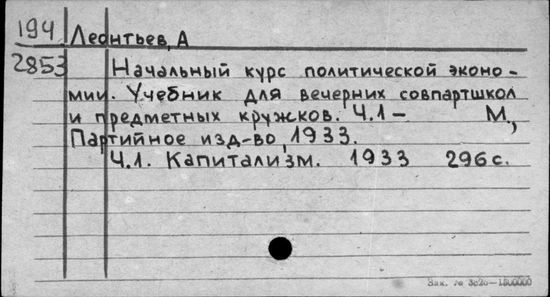 194 Леонтьев, А
2853 Начальный курс политической эконо-
мии. Учебник для вечерних совпартшкол
и предметных кружков. Ч.1 – М,
Партийное изд-во, 1933.
Ч.1. Капитализм. 1933 296 с.
Зак. №